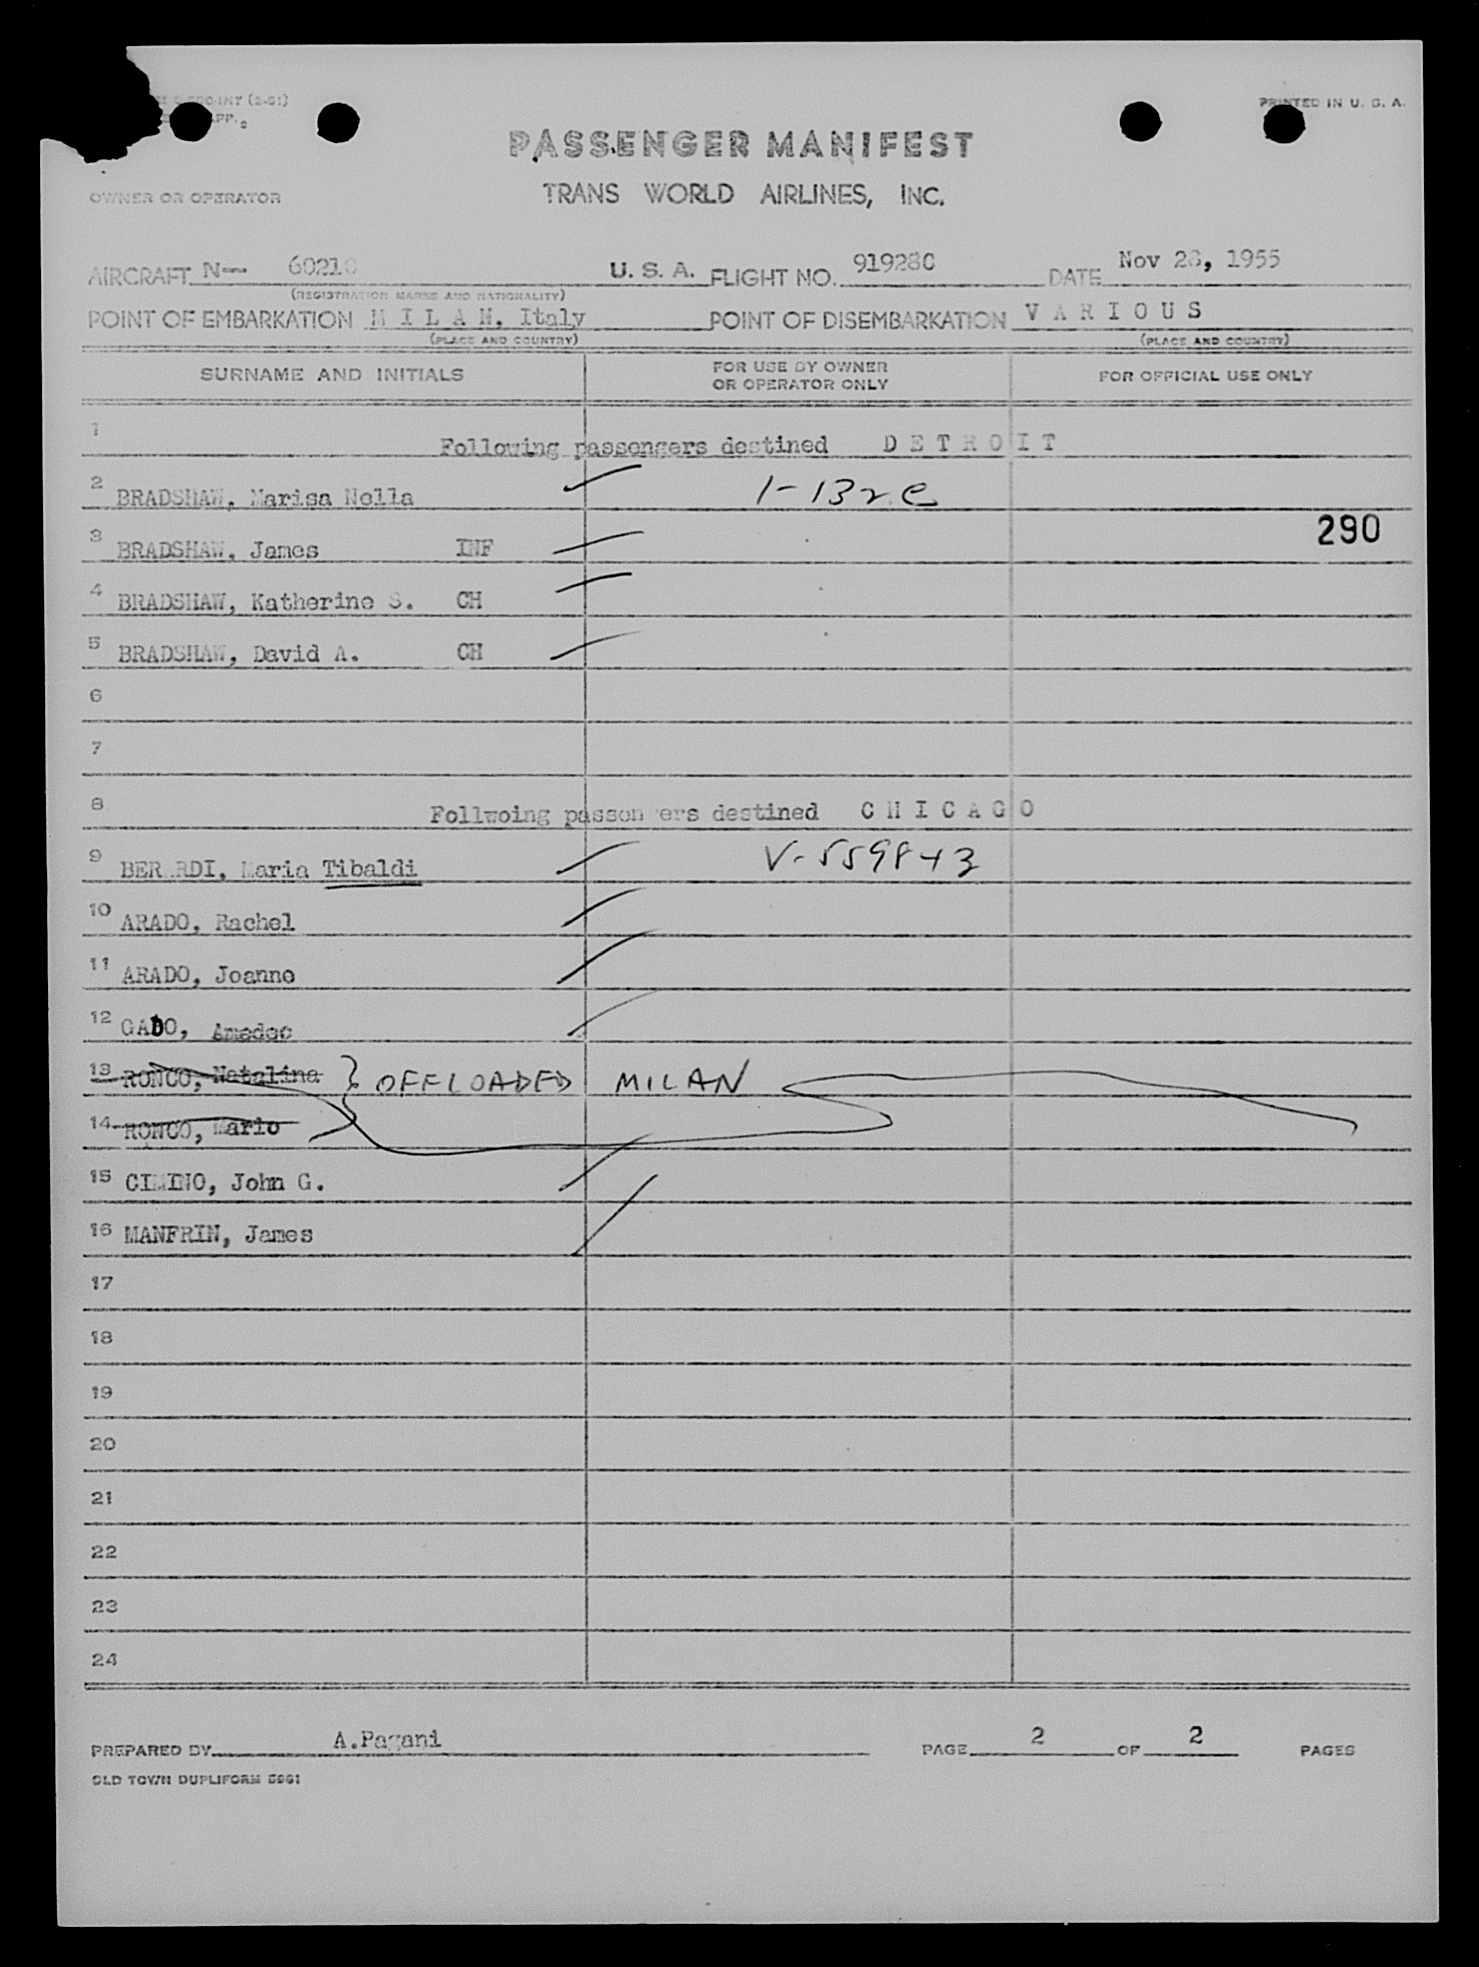 PRINTED IN U. S. A.
PASSENGER MANIFEST
OWNER OR OPERATOR
TRANS WORLD AIRLINES, INC.
AIRCRAFT N-- 60210 U. S. A. FLIGHT NO. 919280 DATE Nov 28, 1955
(REGISTRATION MARKS AND NATIONALITY)
POINT OF EMBARKATION M I L A N, Italy POINT OF DISEMBARKATION V A R I O U S
(PLACE AND COUNTRY) (PLACE AND COUNTRY)
SURNAME AND INITIALS FOR USE BY OWNER OR OPERATOR ONLY FOR OFFICIAL USE ONLY
1 Following passengers destined D E T R O I T
2 BRADSHAW, Marisa Nella
290
3 BRADSHAW, James INF
4 BRADSHAW, Katherine S. CH
5 BRADSHAW, David A. CH
6
7
8 Follwoing passengers destined C H I C A G O
9 BERARDI, Maria Tibaldi V-559843
10 ARADO, Rachel
11 ARADO, Joanne
12 GADO, Amedeo
13 RONCO, Natalina } OFFLOADED MILAN
14 RONCO, Mario
15 CIMINO, John G.
16 MANFRIN, James
17
18
19
20
21
22
23
24
PREPARED BY A.Pagani PAGE 2 OF 2 PAGES
OLD TOWN DUPLIFORM 5961